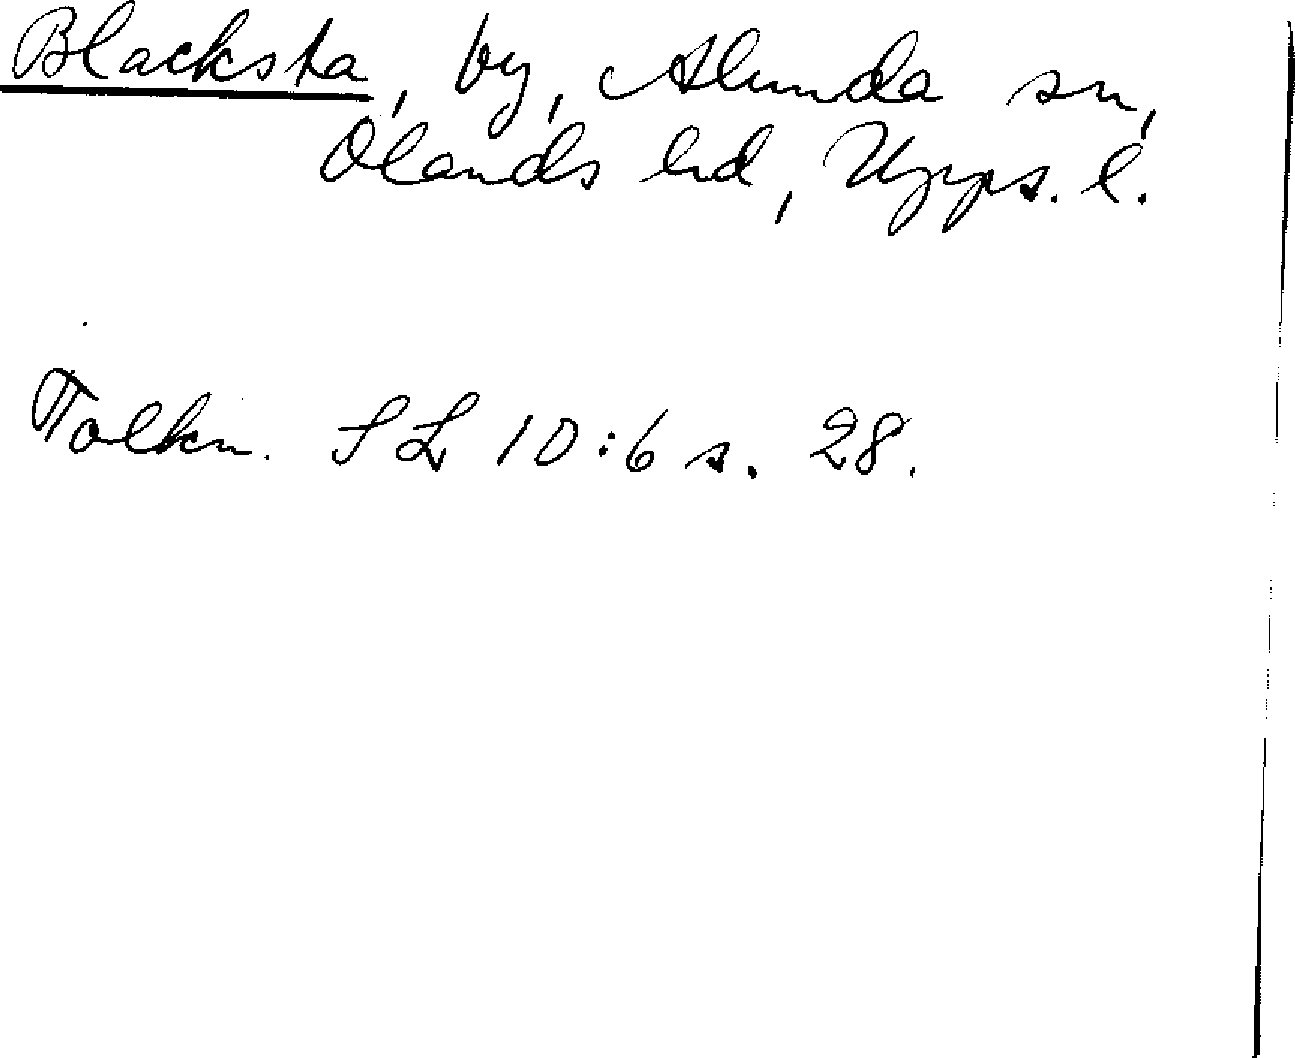 Blacksta, by, Alunda sn,
Olands hd, Upps. l.
Tolkn. SL 10:6 s. 28.